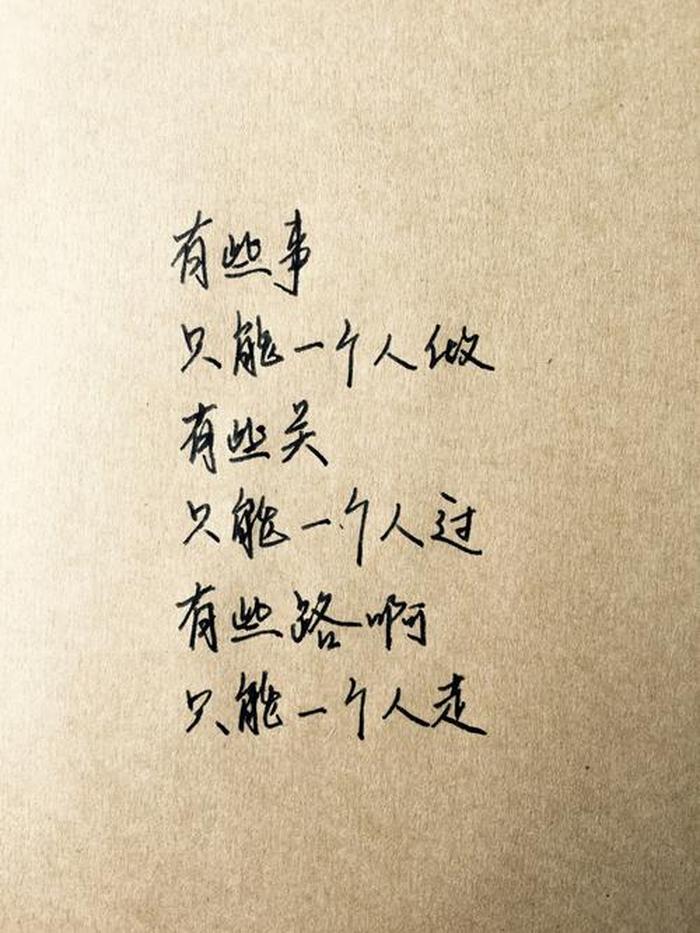 有些事
只能一个人做
有些关
只能一个人过
有些路啊
只能一个人走